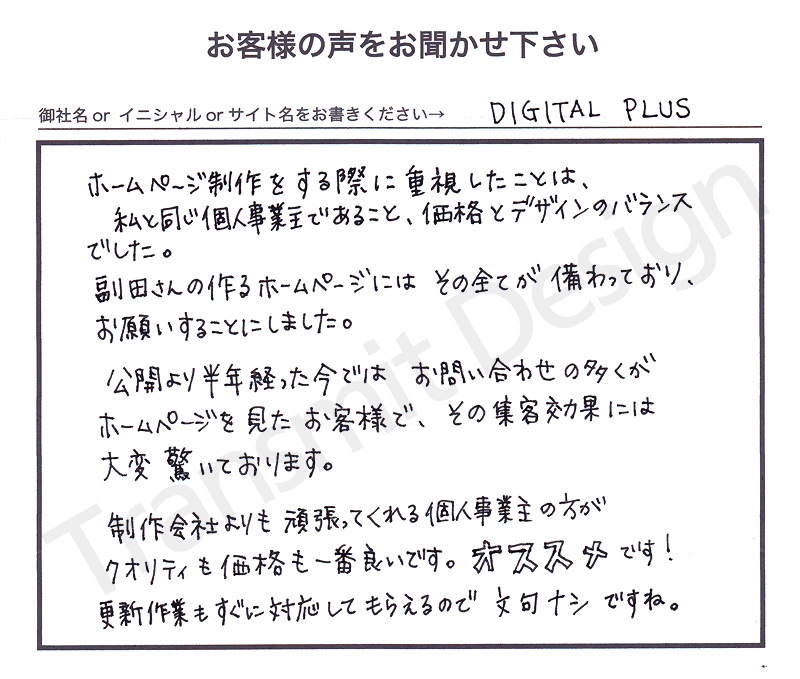 お客様の声をお聞かせ下さい
御社名 or イニシャル or サイト名をお書きください→ DIGITAL PLUS
ホームページ制作をする際に重視したことは、
私と同じ個人事業主であること、価格とデザインのバランス
でした。
副田さんの作るホームページには その全てが 備わっており、
お願いすることにしました。
公開より半年経った今では お問い合わせの多くが
ホームページを見た お客様で、その集客効果には
大変 驚いております。
制作会社よりも 頑張ってくれる個人事業主の方が
クオリティも価格も一番良いです。オススメです!
更新作業もすぐに対応してもらえるので 文句ナシ ですね。
Transmit Design